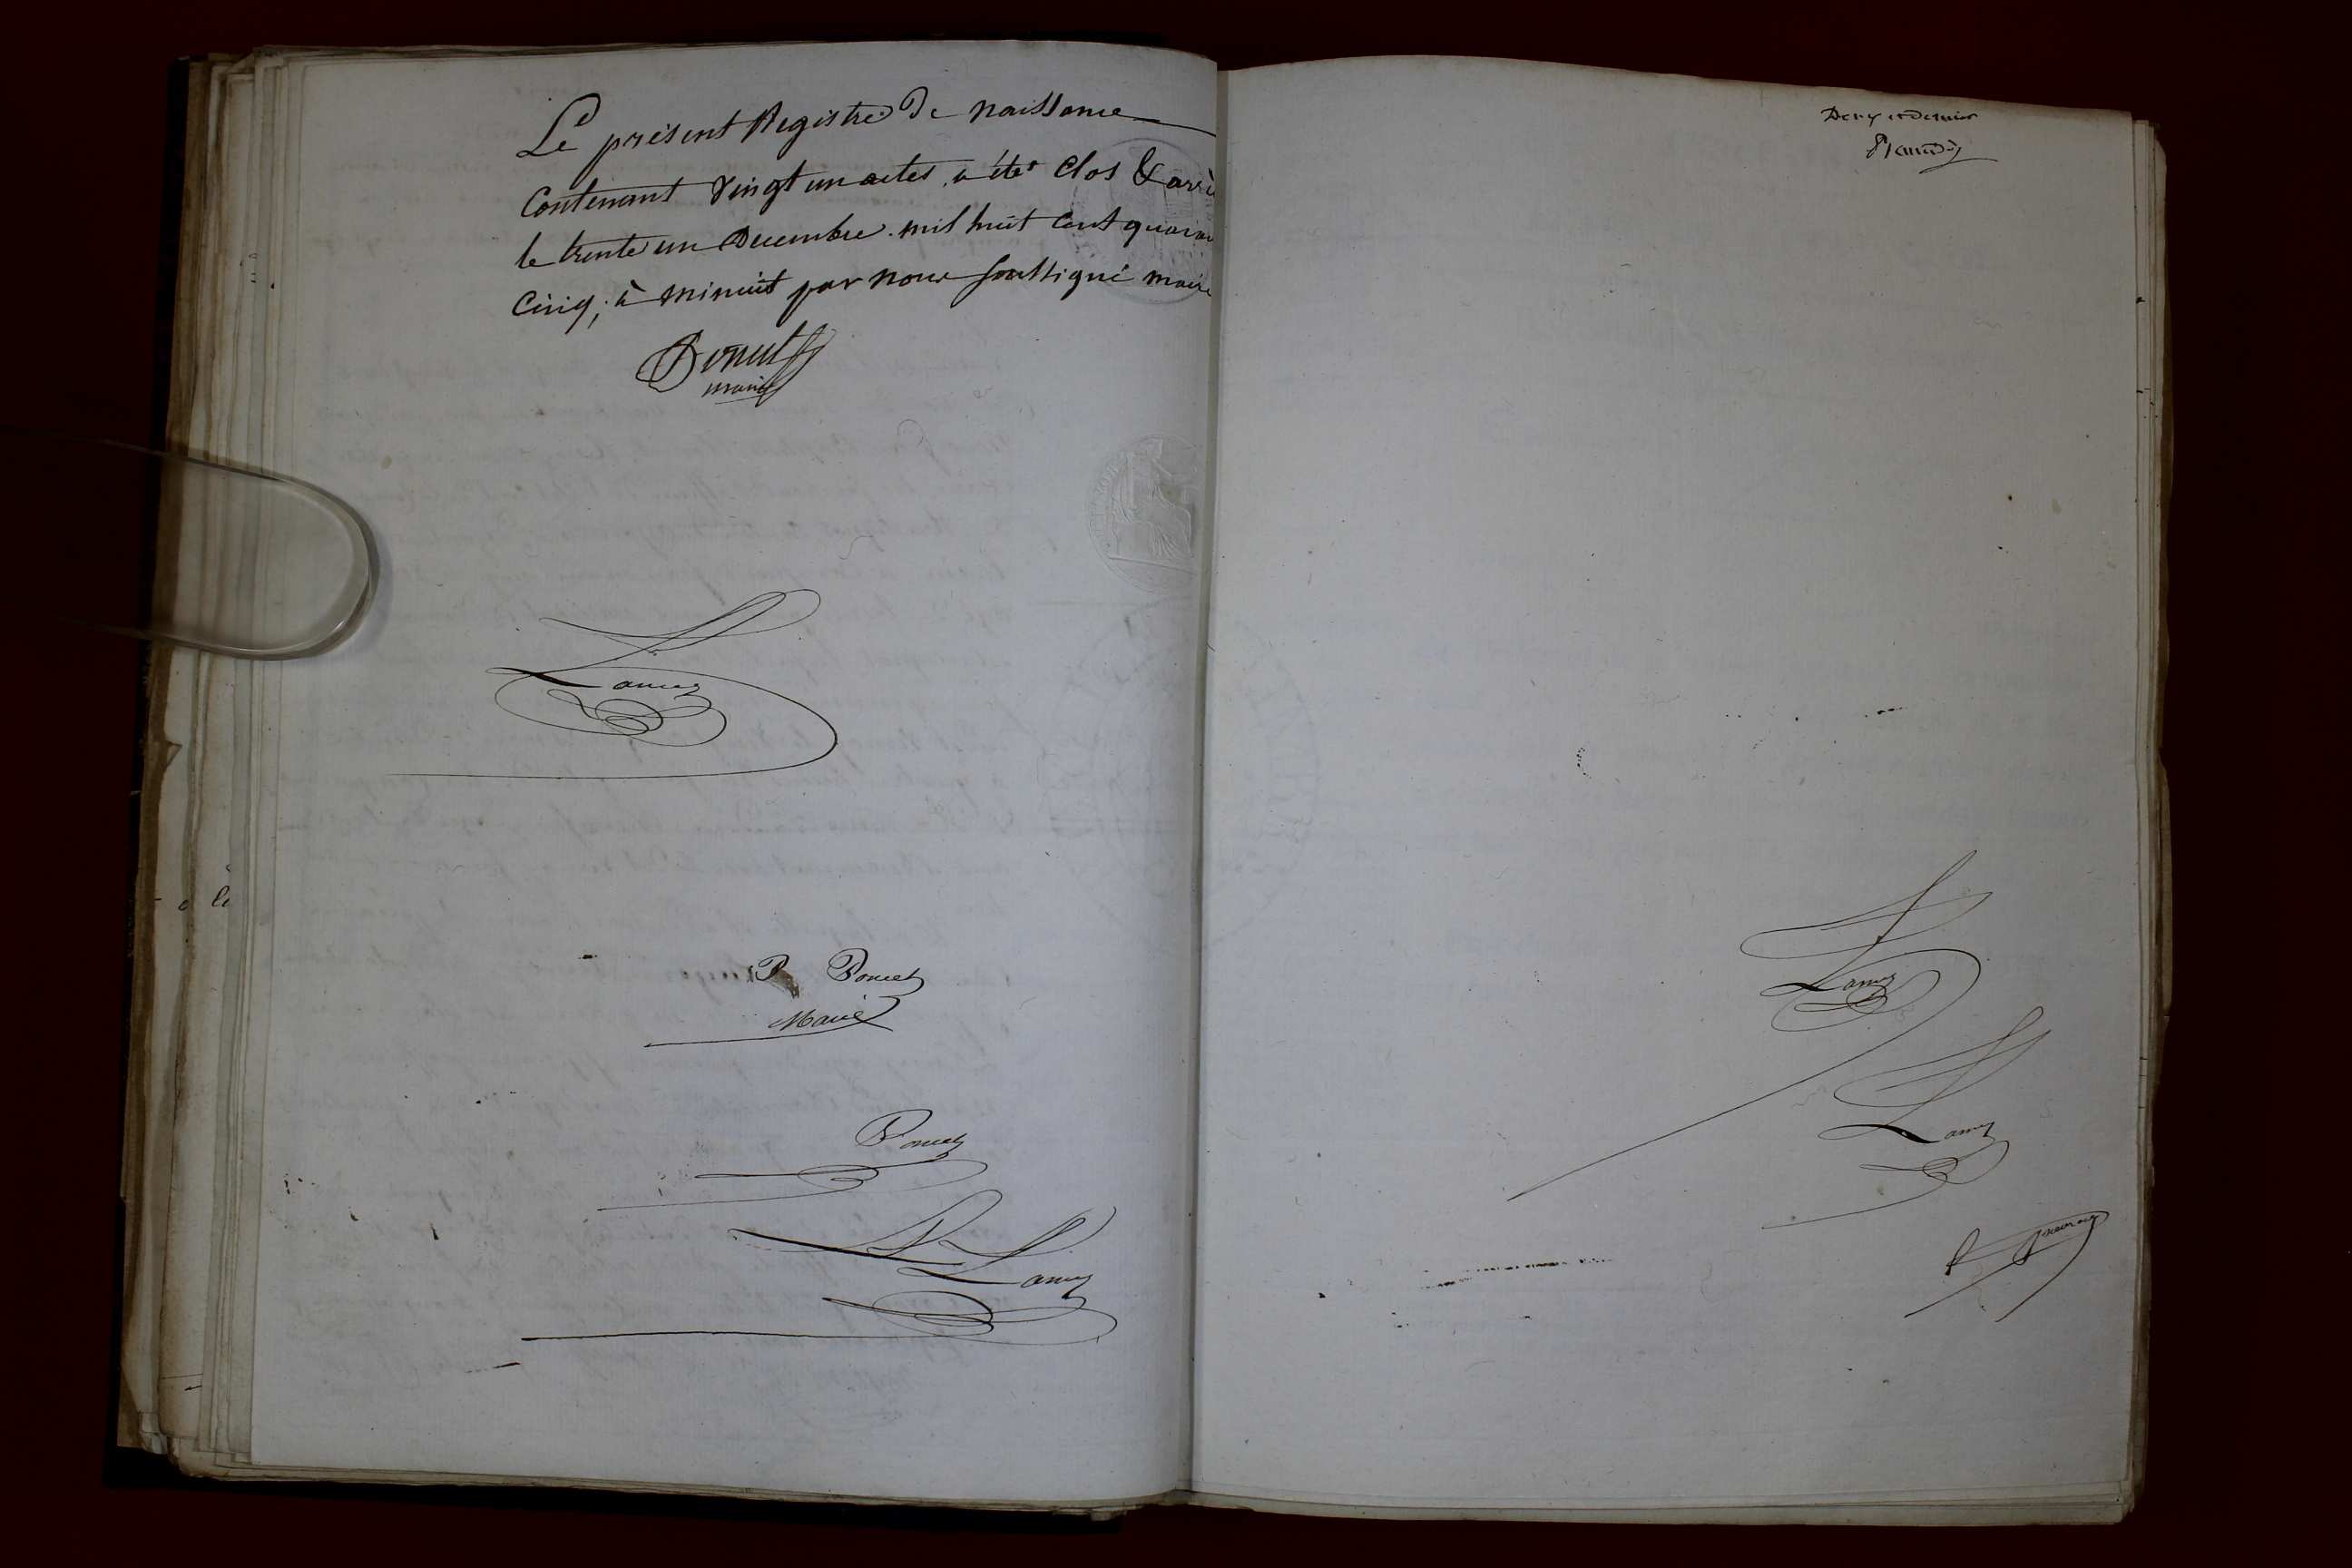 Le présent Registre De naissance
Contenant Vingt un actes, a été Clos & arrê
le trente un Decembre mil huit Cent quaran
Cinq, à minuit par nous soussigné maire
maire
Lamy
P Poncet
Maire
Poncet
Lamy
Deux et dernier
Lamy
Lamy